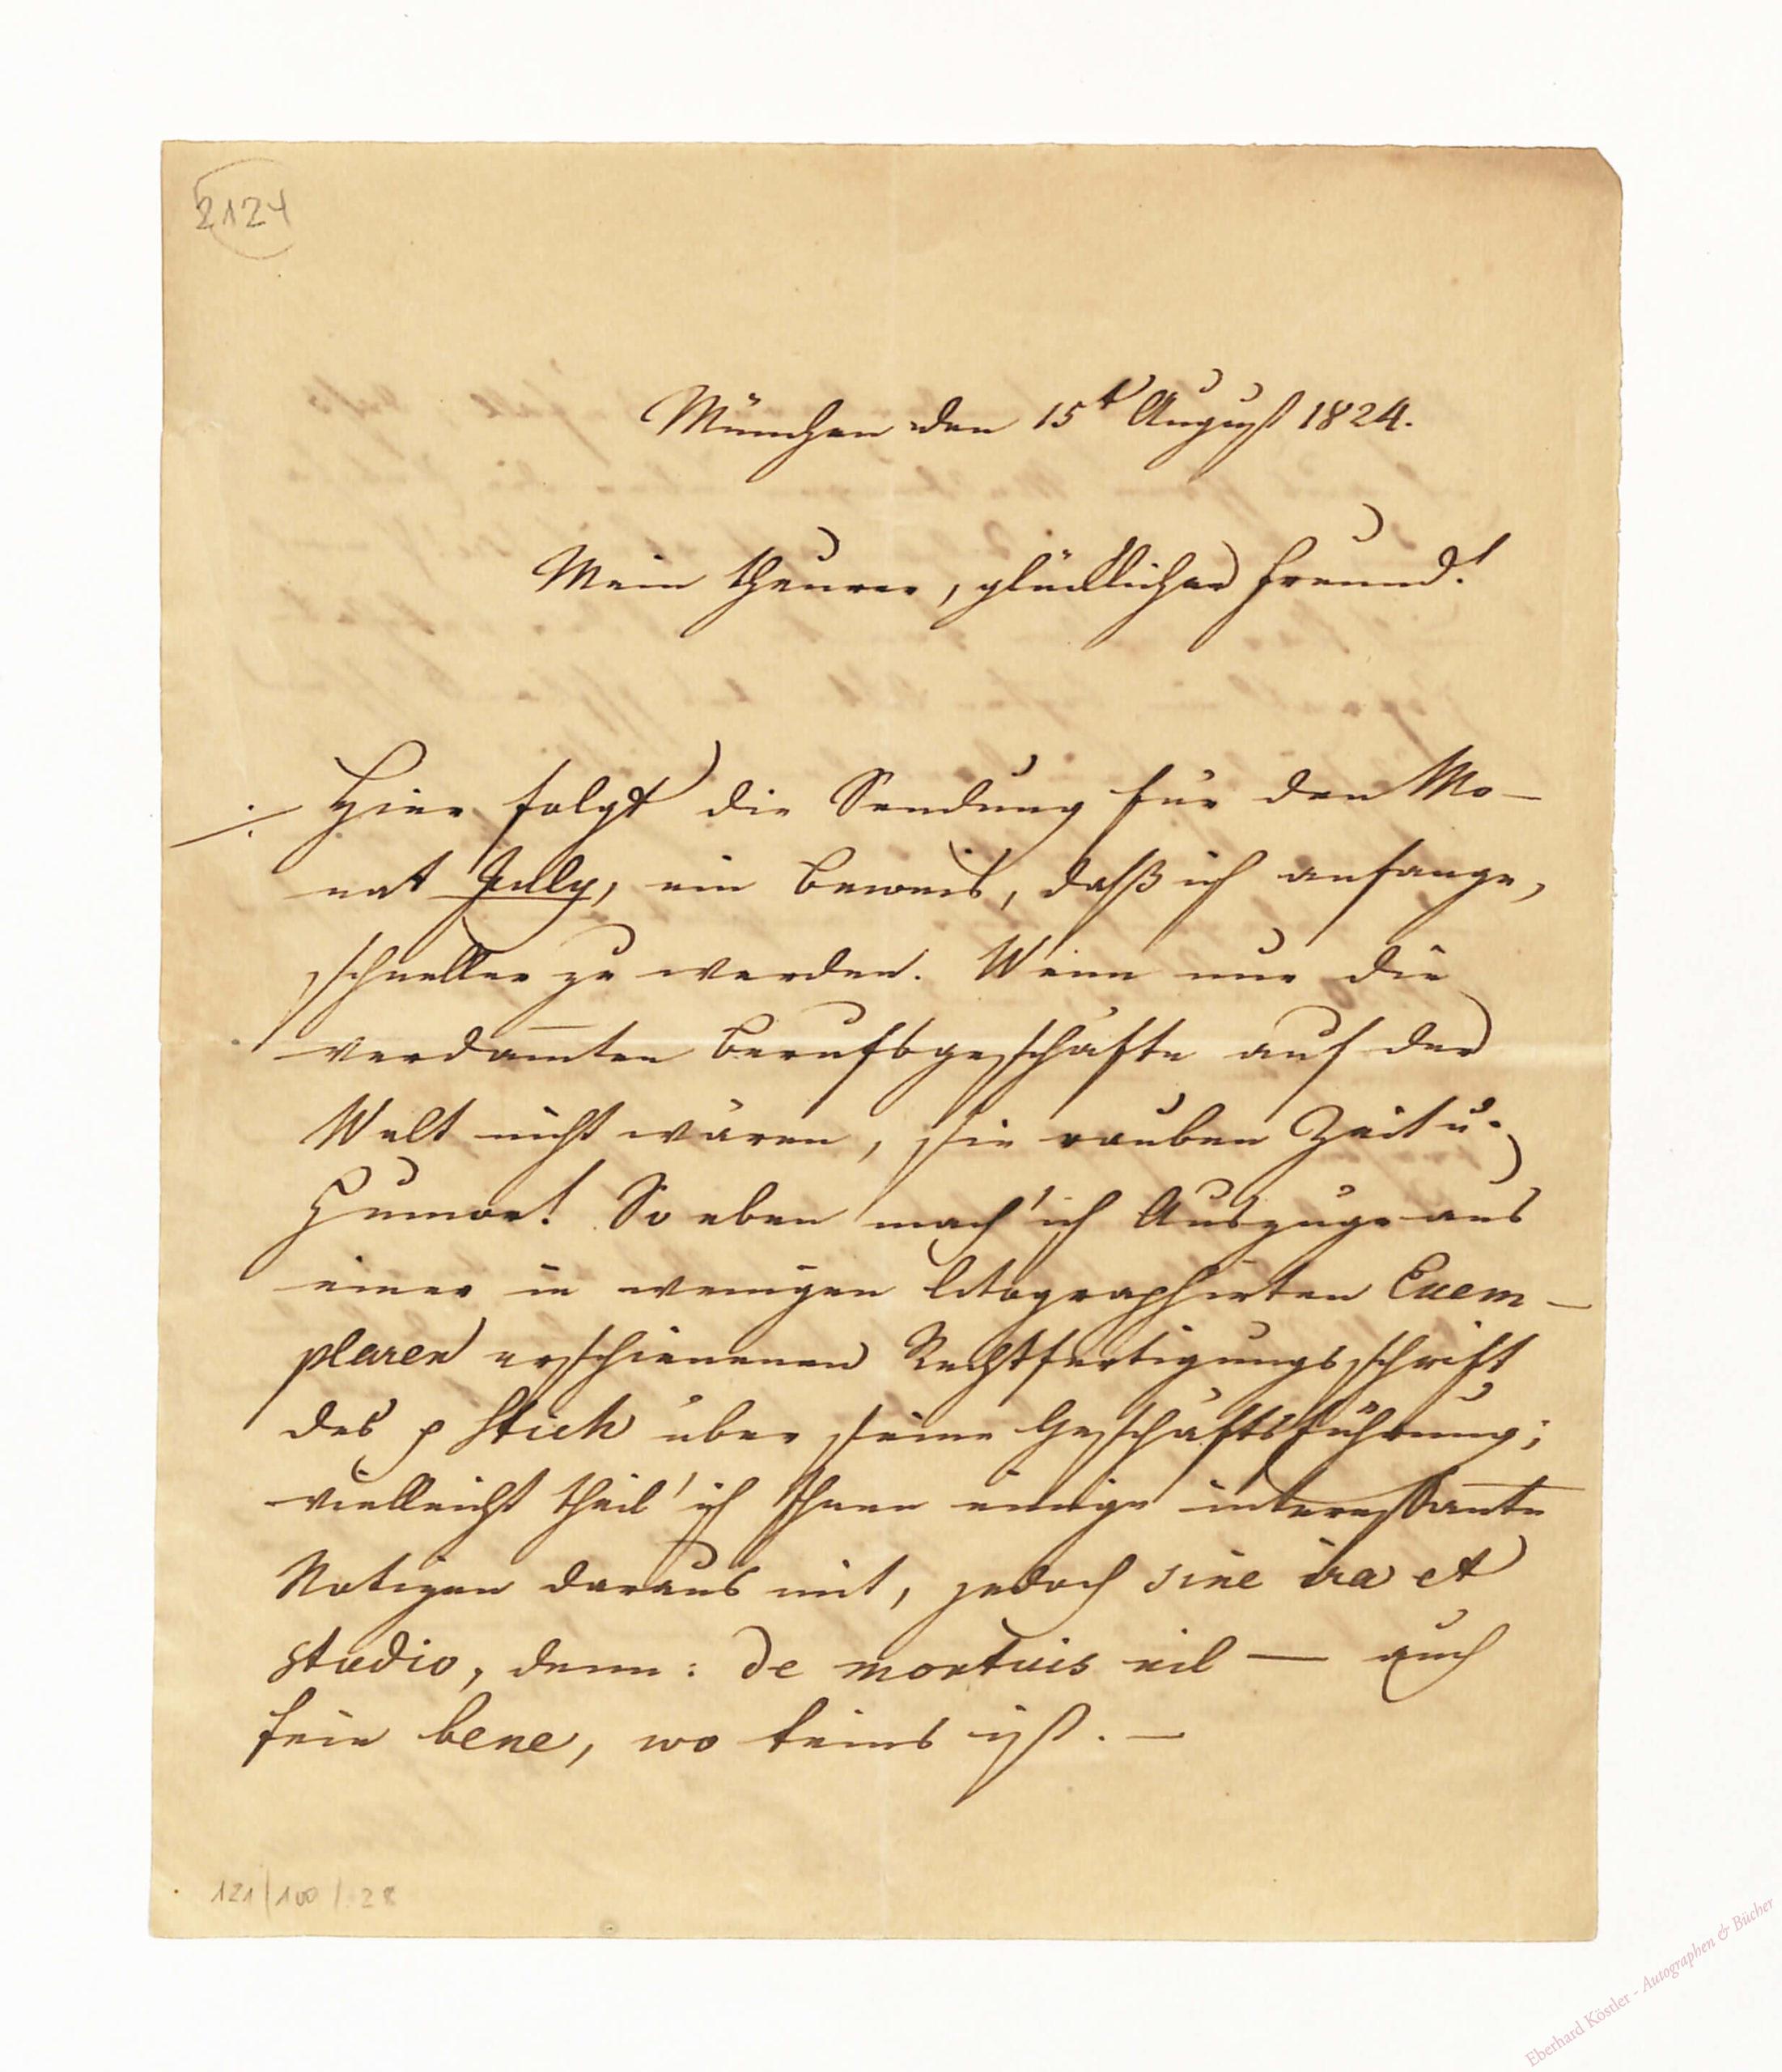 2124
München den 15t August 1824.
Mein theurer, glücklicher Freund!
Hier folgt die Sendung für den Mo-
nat July, ein Beweis, daß ich anfange,
schneller zu werden. Wenn nur die
verdam̅ten Berufsgeschäfte auf der
Welt nicht wären, sie rauben Zeit u.
Humor! So eben mach' ich Auszüge aus
einer in wenigen litographirten Exem-
plaren erschienenen Rechtfertigungsschrift
des p Stich über seine Geschäftsführung;
vielleicht theil' ich Ihnen einige interessante
Notizen daraus mit, jedoch sine ira et
studio, denn: de mortuis nil — auch
kein bene, wo keins ist. —
121/100/28
Eberhard Köstler - Autographen & Bücher